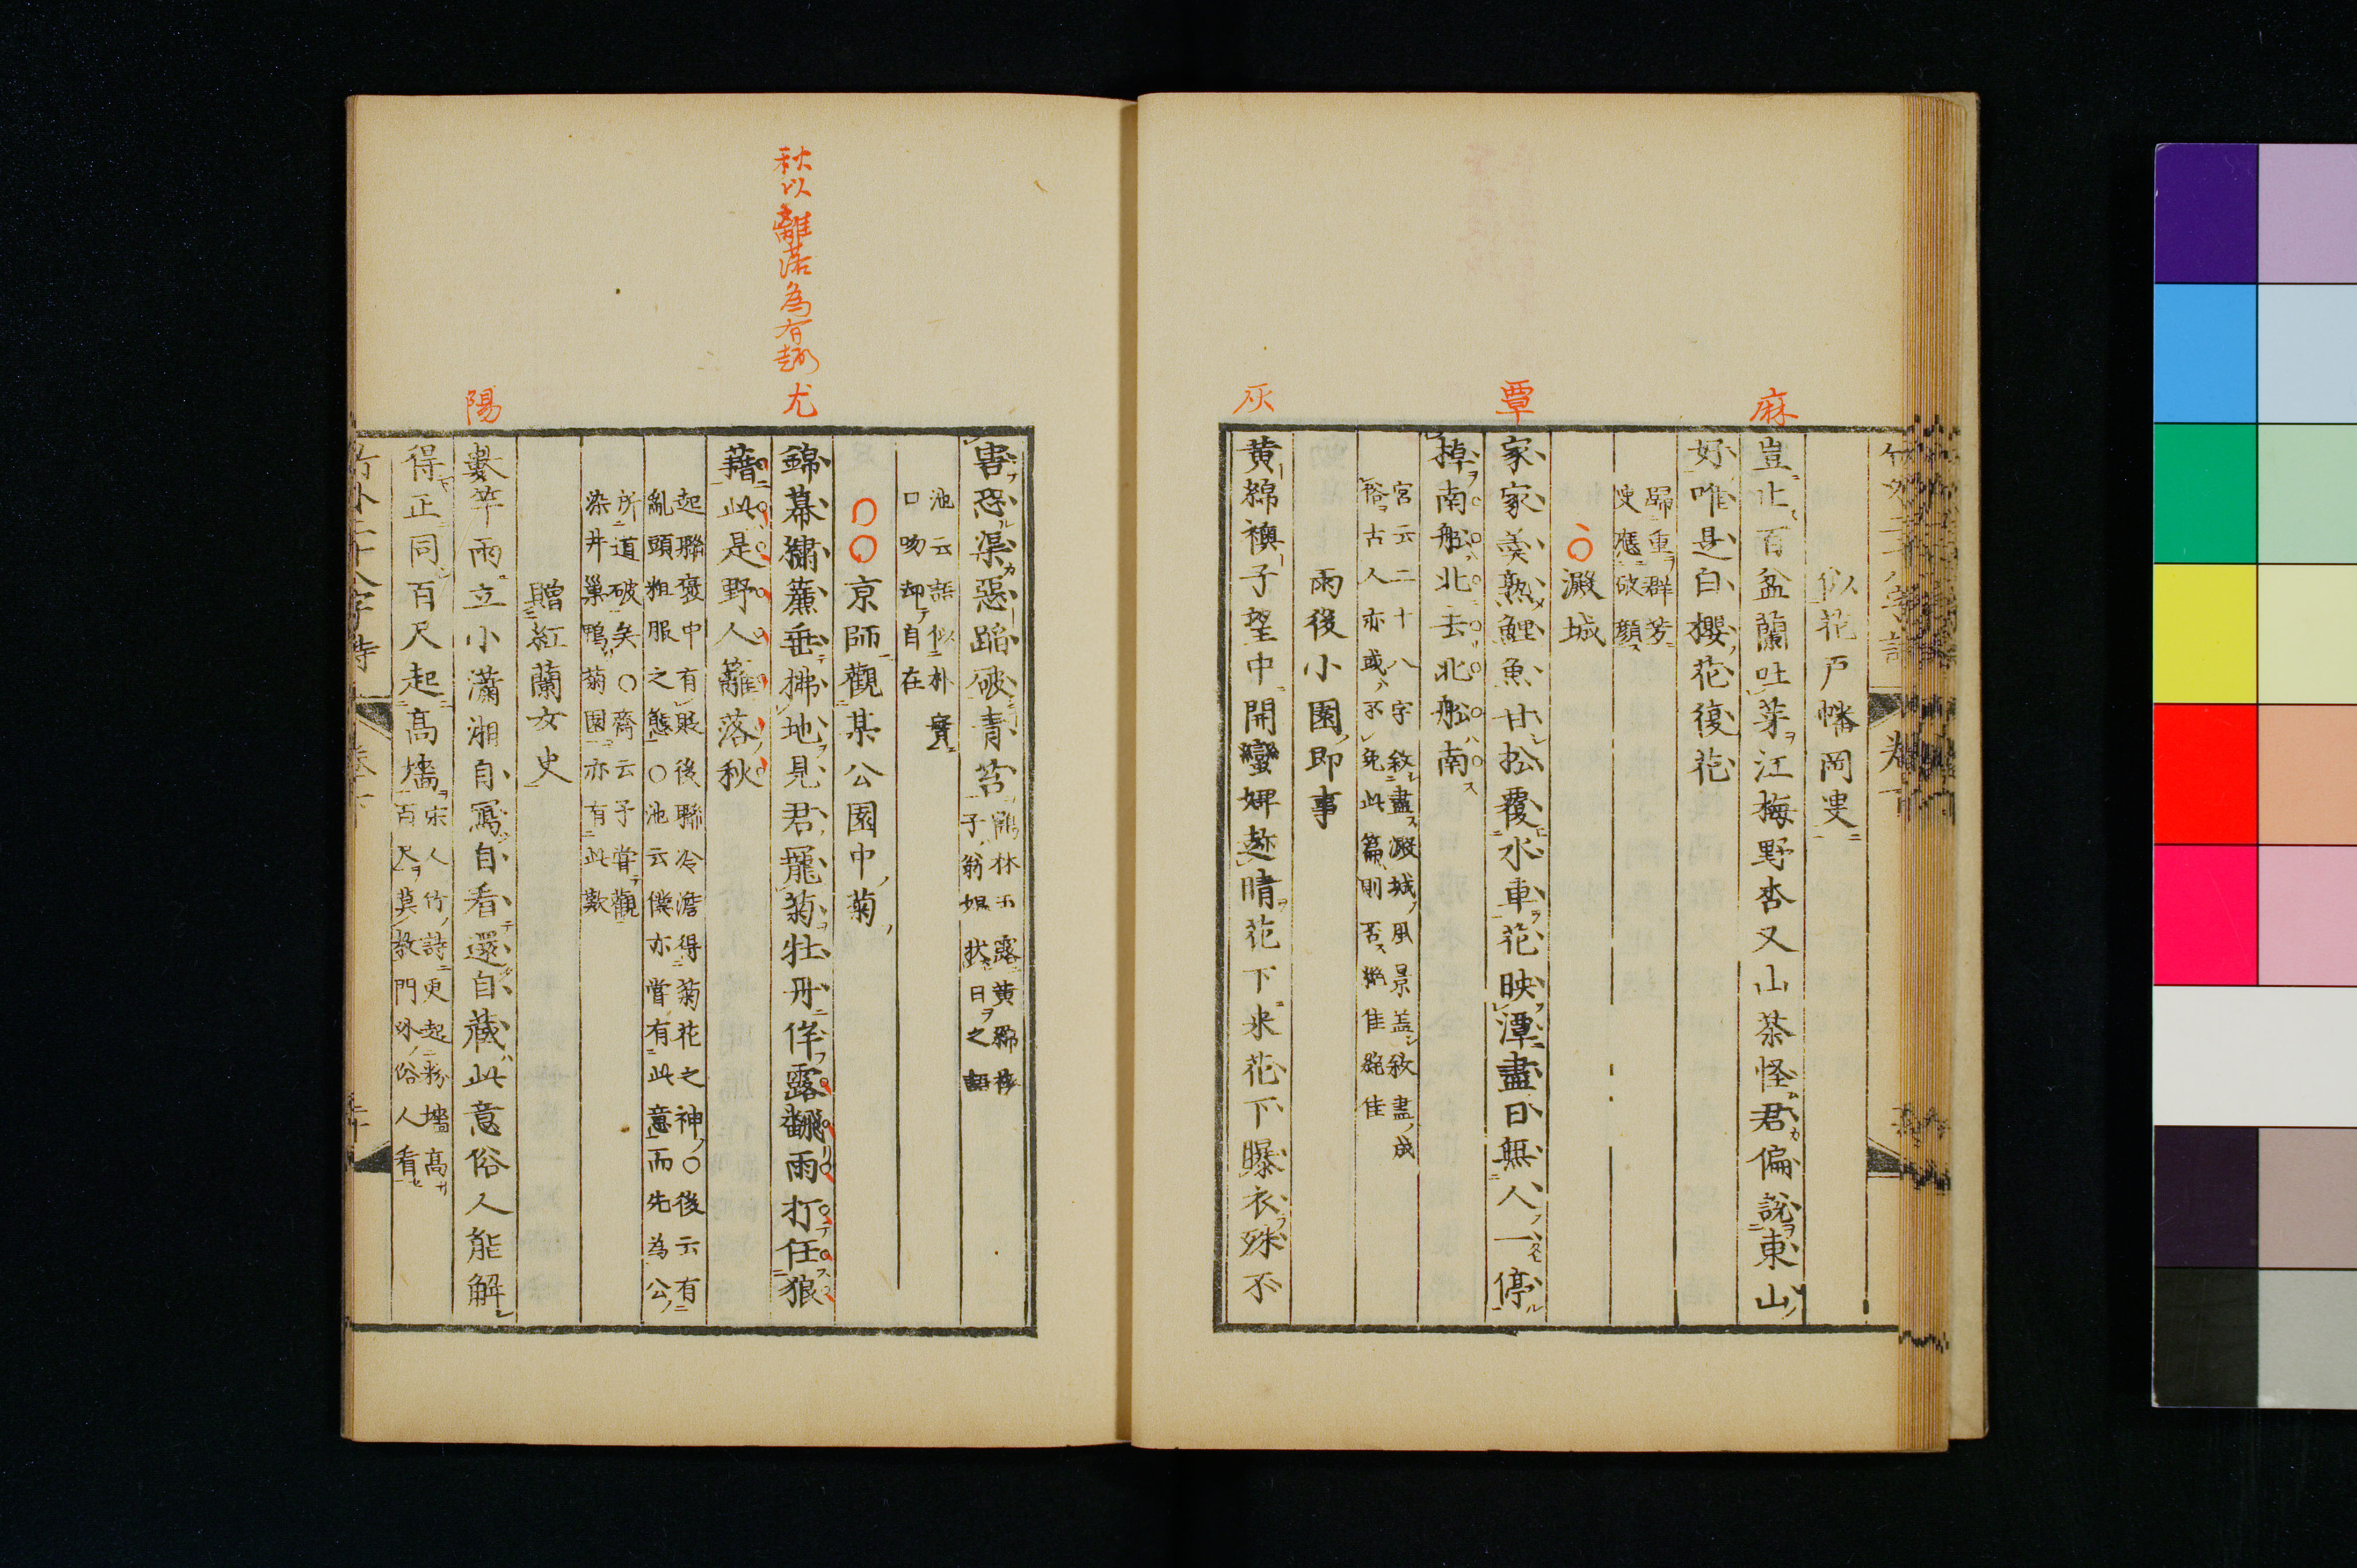 麻
覃
灰
似花戸幡岡叟
豈止百盆蘭吐芽江梅野杏又山茶怪君偏説東山
好唯是白櫻花復花
歸重群芳
叟應破顔
澱城
家家羹熟鯉魚甘松覆水車花映潭盡日無人一停
棹南船北去北船南
宮云二十八字敘盡澱城風景盖敘盡成
俗古人亦或不免此篇則否絶佳絶佳
雨後小園即事
黄綿襖子望中開蠻婢趁晴花下来花下曝衣殊不
秋以離落為有趣
尤
陽
害恐渠惡蹈破青苔
鶴林玉露黄綿襖
子翁媼狀日之語
池云語似朴實
口吻却自在
京師觀某公園中菊
錦幕繡簾垂拂地見君寵菊牡丹侔露翻雨打任狼
藉此是野人籬落秋
起聯褒中有貶後聯冷澹得菊花之神○後云有
亂頭粗服之態○池云僕亦嘗有此意而先為公
所道破矣○齋云予嘗觀
染井巢鴨菊園亦有此歎
贈紅蘭女史
數竿雨立小瀟湘自寫自看還自藏此意俗人能解
得正同百尺起高墻
宋人竹詩更起粉墻高
百尺莫教門外俗人看